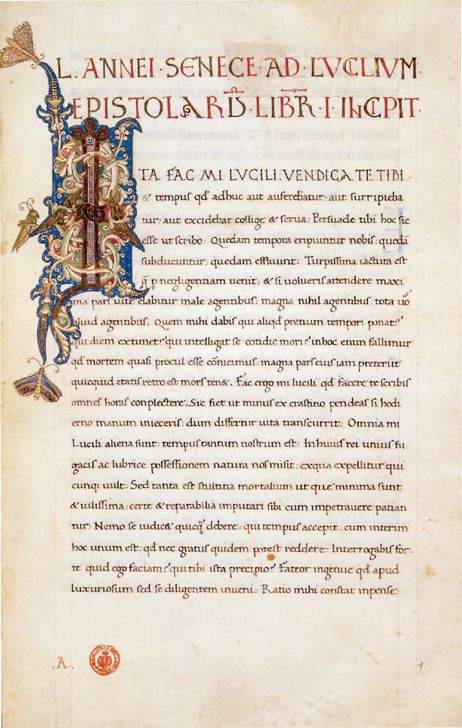 L. ANNEI·SENECE·AD·LVCLIVM·
EPISTOLARŪ·LIBR̄·I·INCPIT·
ITA FAC MI LVCILI: VENDICA TE TIBI
& tempus qd adhuc aut auferebatur: aut surripieba
tur: aut excidebat collige & serua: Persuade tibi hoc sic
esse ut scribo: Quedam tempora eripiuntur nobis: quedā
subducuntur: quedam effluunt: Turpissima iactura est
q̄ p negligentiam uenit: & si uolueris attendere maxi
ma pars uite elabitur male agentibus: magna nihil agentibus: tota uitȩ
aliud agentibus: Quem mihi dabis qui aliqd pretium tempori ponat?
qui diem extimet? qui intelligat se cotidie mori? inhoc enim fallimur
qd mortem quasi procul esse cōnicimus: magna pars eius iam preteriit
quicquid etatis retro est mors ten&: Fac ergo mi lucili: qd facere te scribis
omnes horas conplectere: Sic fiet ut minus ex crastino pendeas si hodi
erno manum inieceris: dum differtur uita transcurrit: Omnia mi
Lucili aliena sunt: tempus tantum nostrum est: Inhuius rei unius fu
gacis ac lubrice possessionem natura nos misit: exqua expellitur qui
cunqȝ uult: Sed tanta est stultitia mortalium ut que minima sunt
& uilissima: certe & reparabilia imputari sibi cum impetrauere patian
tur: Nemo se iudic& quicq̄ debere: qui tempus accepit: cum interim
hoc unum est: qd nec gratus quidem potest reddere: Interrogabis for
te quid ego faciam? qui tibi ista precipio? Fateor ingenue qd apud
luxuriosum sed se diligentem inueni: Ratio mihi constat inpense:
.A.
1